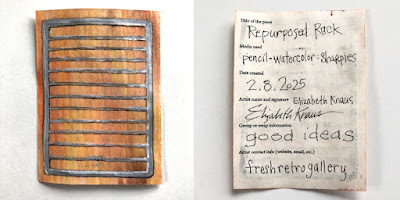 Title of the piece
Repurposal Rack
Media used
pencil-watercolor-Sharpies
Date created
2.8.2025
Artist name and signature Elizabeth Kraus
Elizabeth Kraus
Group or swap information
good ideas
Artist contact info (website, email, etc.)
freshretrogallery